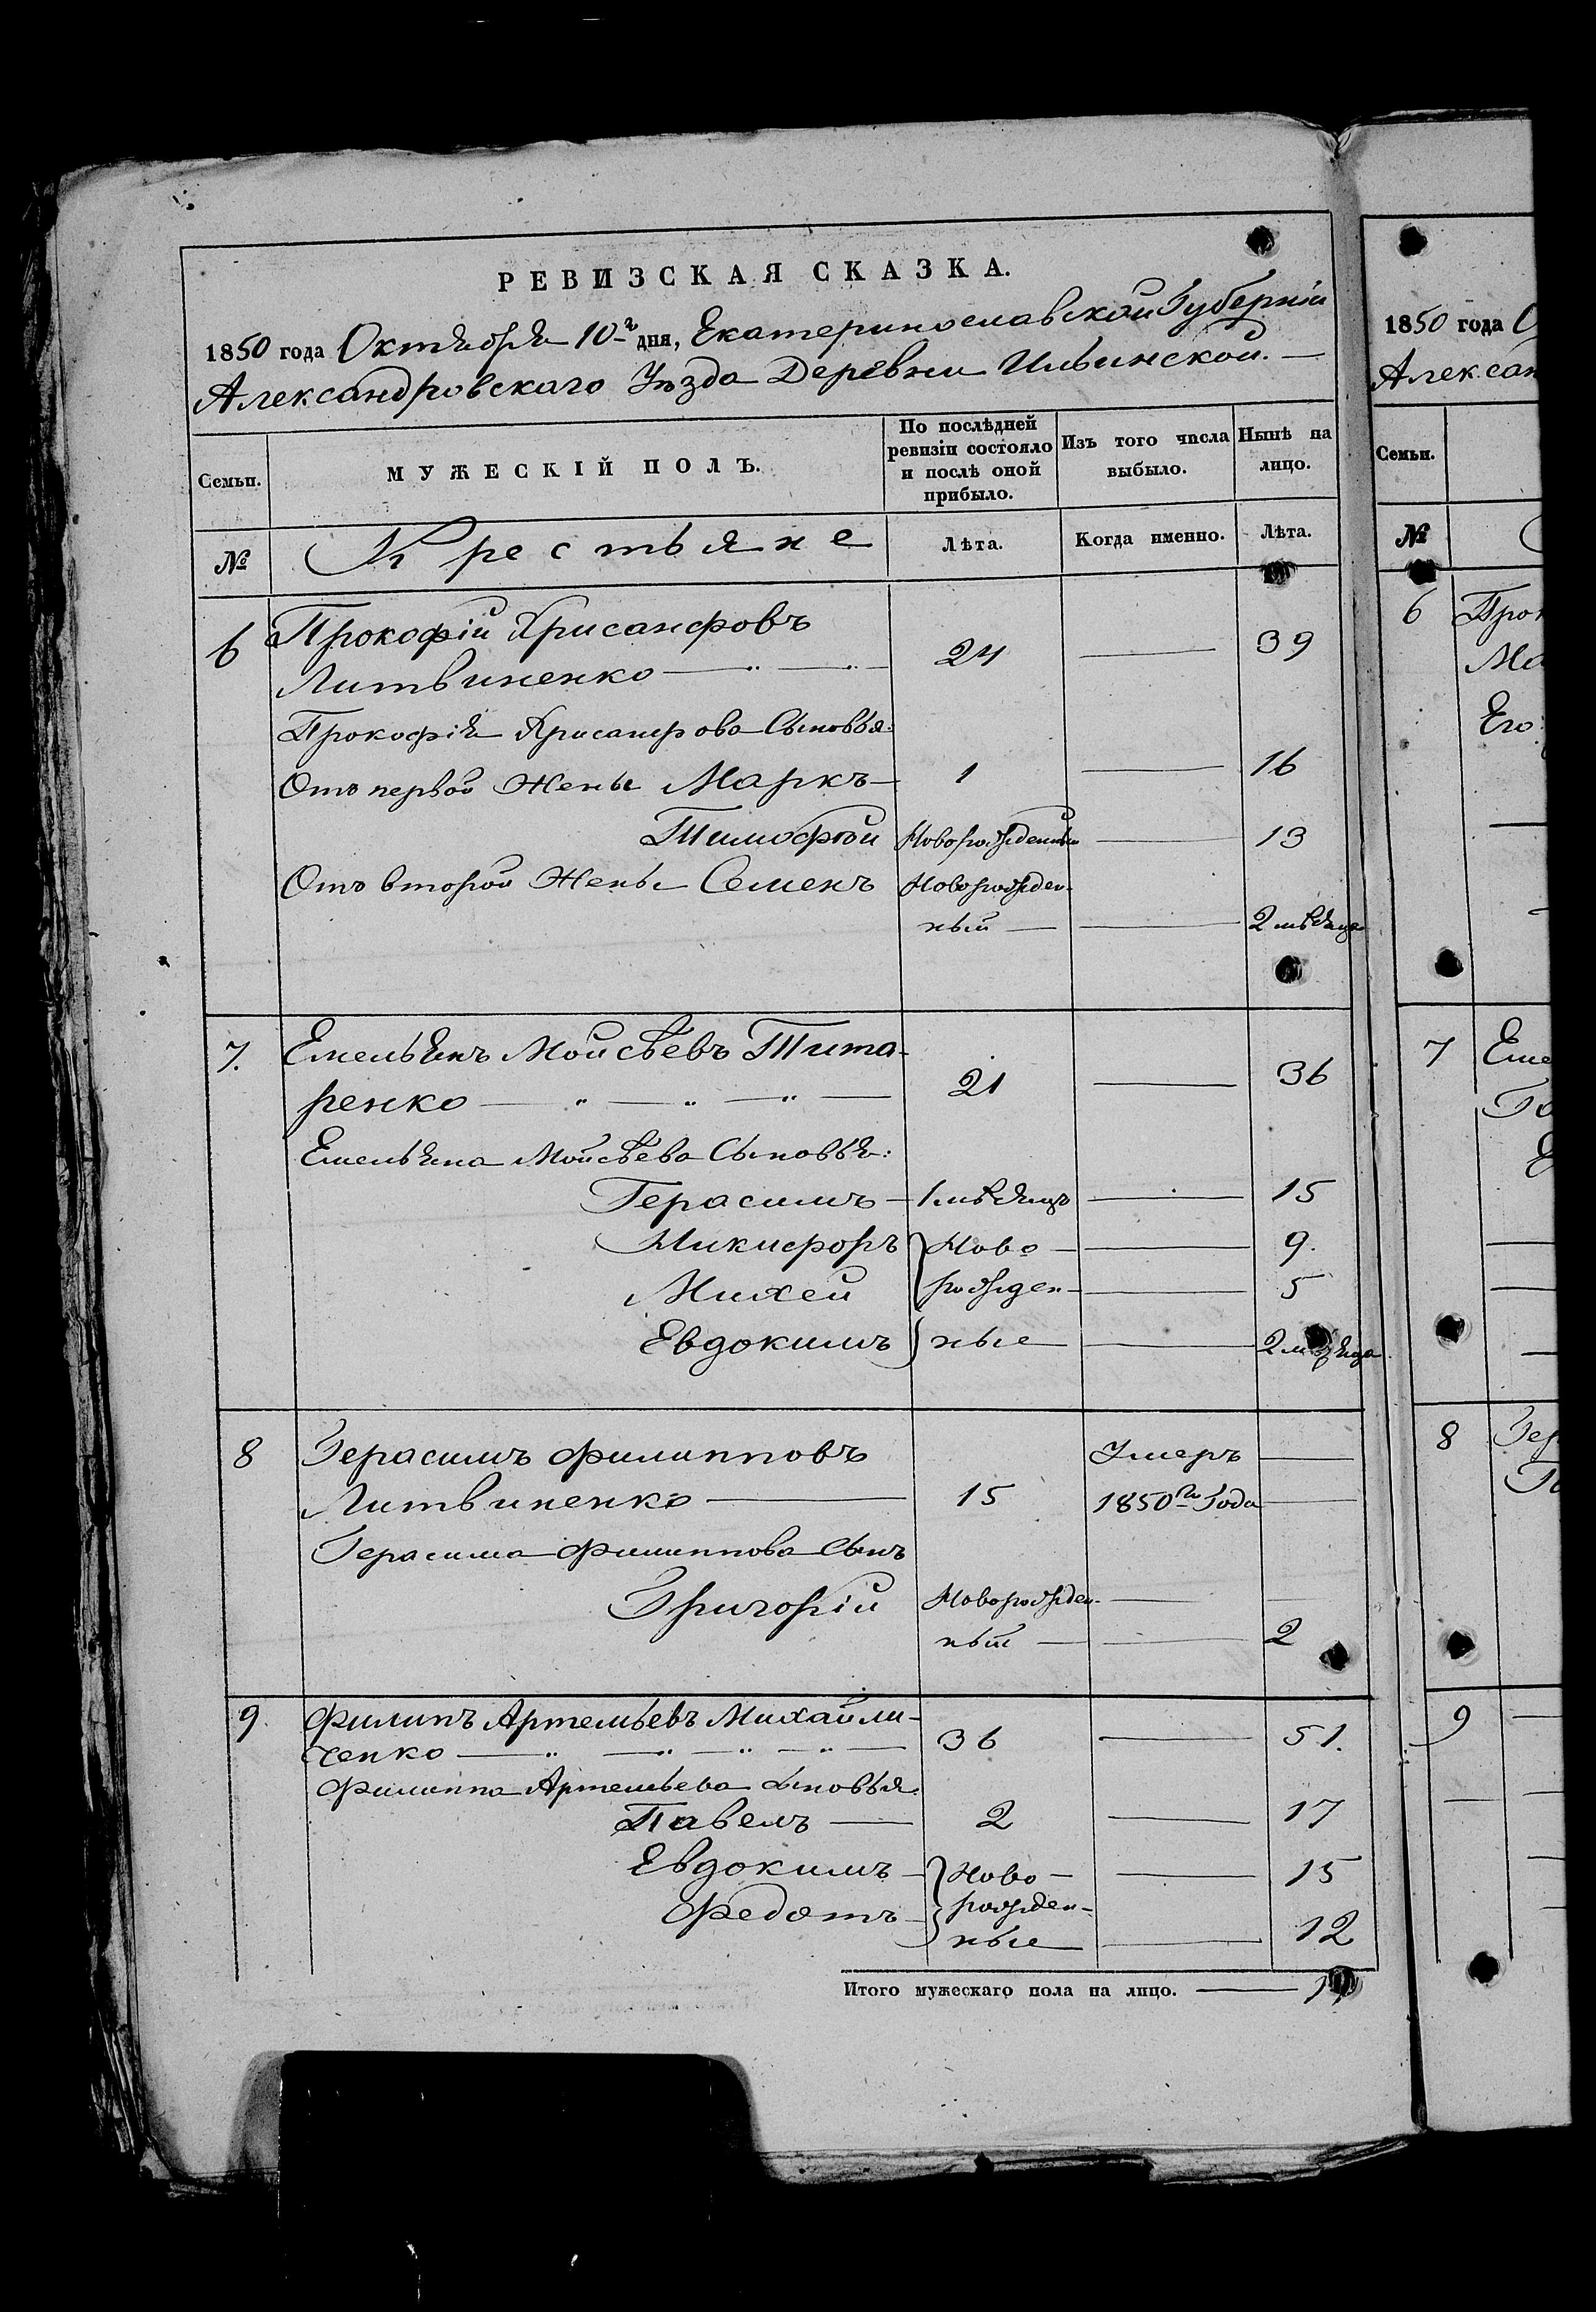 РЕВИЗСКАЯ СКАЗКА.
1850 года Октября 10го дня, Екатеринославской Губерніи
Александровскаго Уѣзда Деревни Ильинской. —
Семьи. МУЖЕСКІЙ ПОЛЪ. По послѣдней ревизіи состояло и послѣ оной прибыло. Изъ того числа выбыло. Нынѣ на лицо.
№ Крестьяне Лѣта. Когда именно. Лѣта.
6 Прокофій Хрисанфовъ
Литвиненко — 24 — 39
Прокофія Хрисанфова Сыновья:
Отъ первой Жены Маркъ — 1 — 16
Тимофей Новорожденный — 13
Отъ второй Жены Семенъ Новорожден-
ный — — 2 мѣсяца
7. Емельянъ Мойсѣевъ Тита-
ренко — 21 — 36
Емельяна Мойсѣева Сыновья:
Герасимъ — 1 мѣсяцъ — 15
Никифоръ Ново — — 9.
Михей рожден- — 5
Евдокимъ ные — 2 мѣсяца
8 Герасимъ Филипповъ Умеръ —
Литвиненко — 15 1850го Года —
Герасима Филиппова Сынъ
Григорій Новорожден- —
ный — — 2
9. Филипъ Артемьевъ Михайли-
ченко — 36 — 51.
Филиппа Артемьева Сыновья.
Павелъ — 2 — 17
Евдокимъ — Ново — — 15
Федотъ — рожден-
ные — 12
Итого мужескаго пола на лицо. —
1850 года О
Александ
Семьи.
№
6 Прок
Ма
Его
7 Еме
8 Гер
9 —